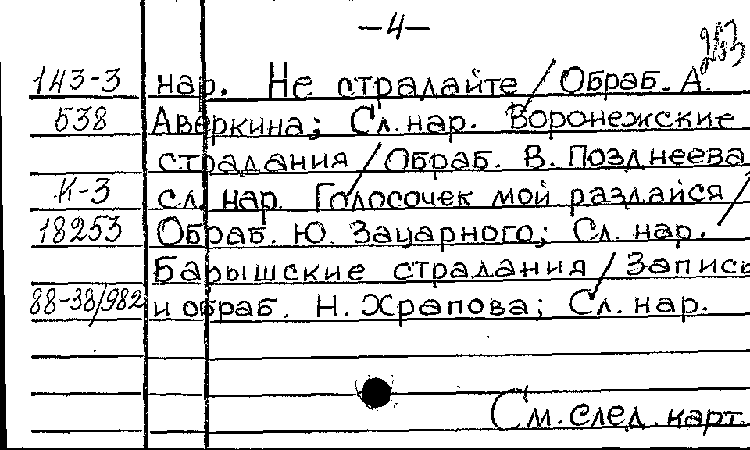 —4—
253
143-3 нар. Не страдайте / Обраб. А.
538 Аверкина; Сл. нар. Воронежские
страдания / Обраб. В. Позднеева
К-3 сл. нар. Голосочек мой раздайся /
18253 Обраб. Ю. Зацарного; Сл. нар.
Барышские страдания / Запись
88-38/982 и обраб. Н. Храпова; Сл. нар.
См. след. карт.